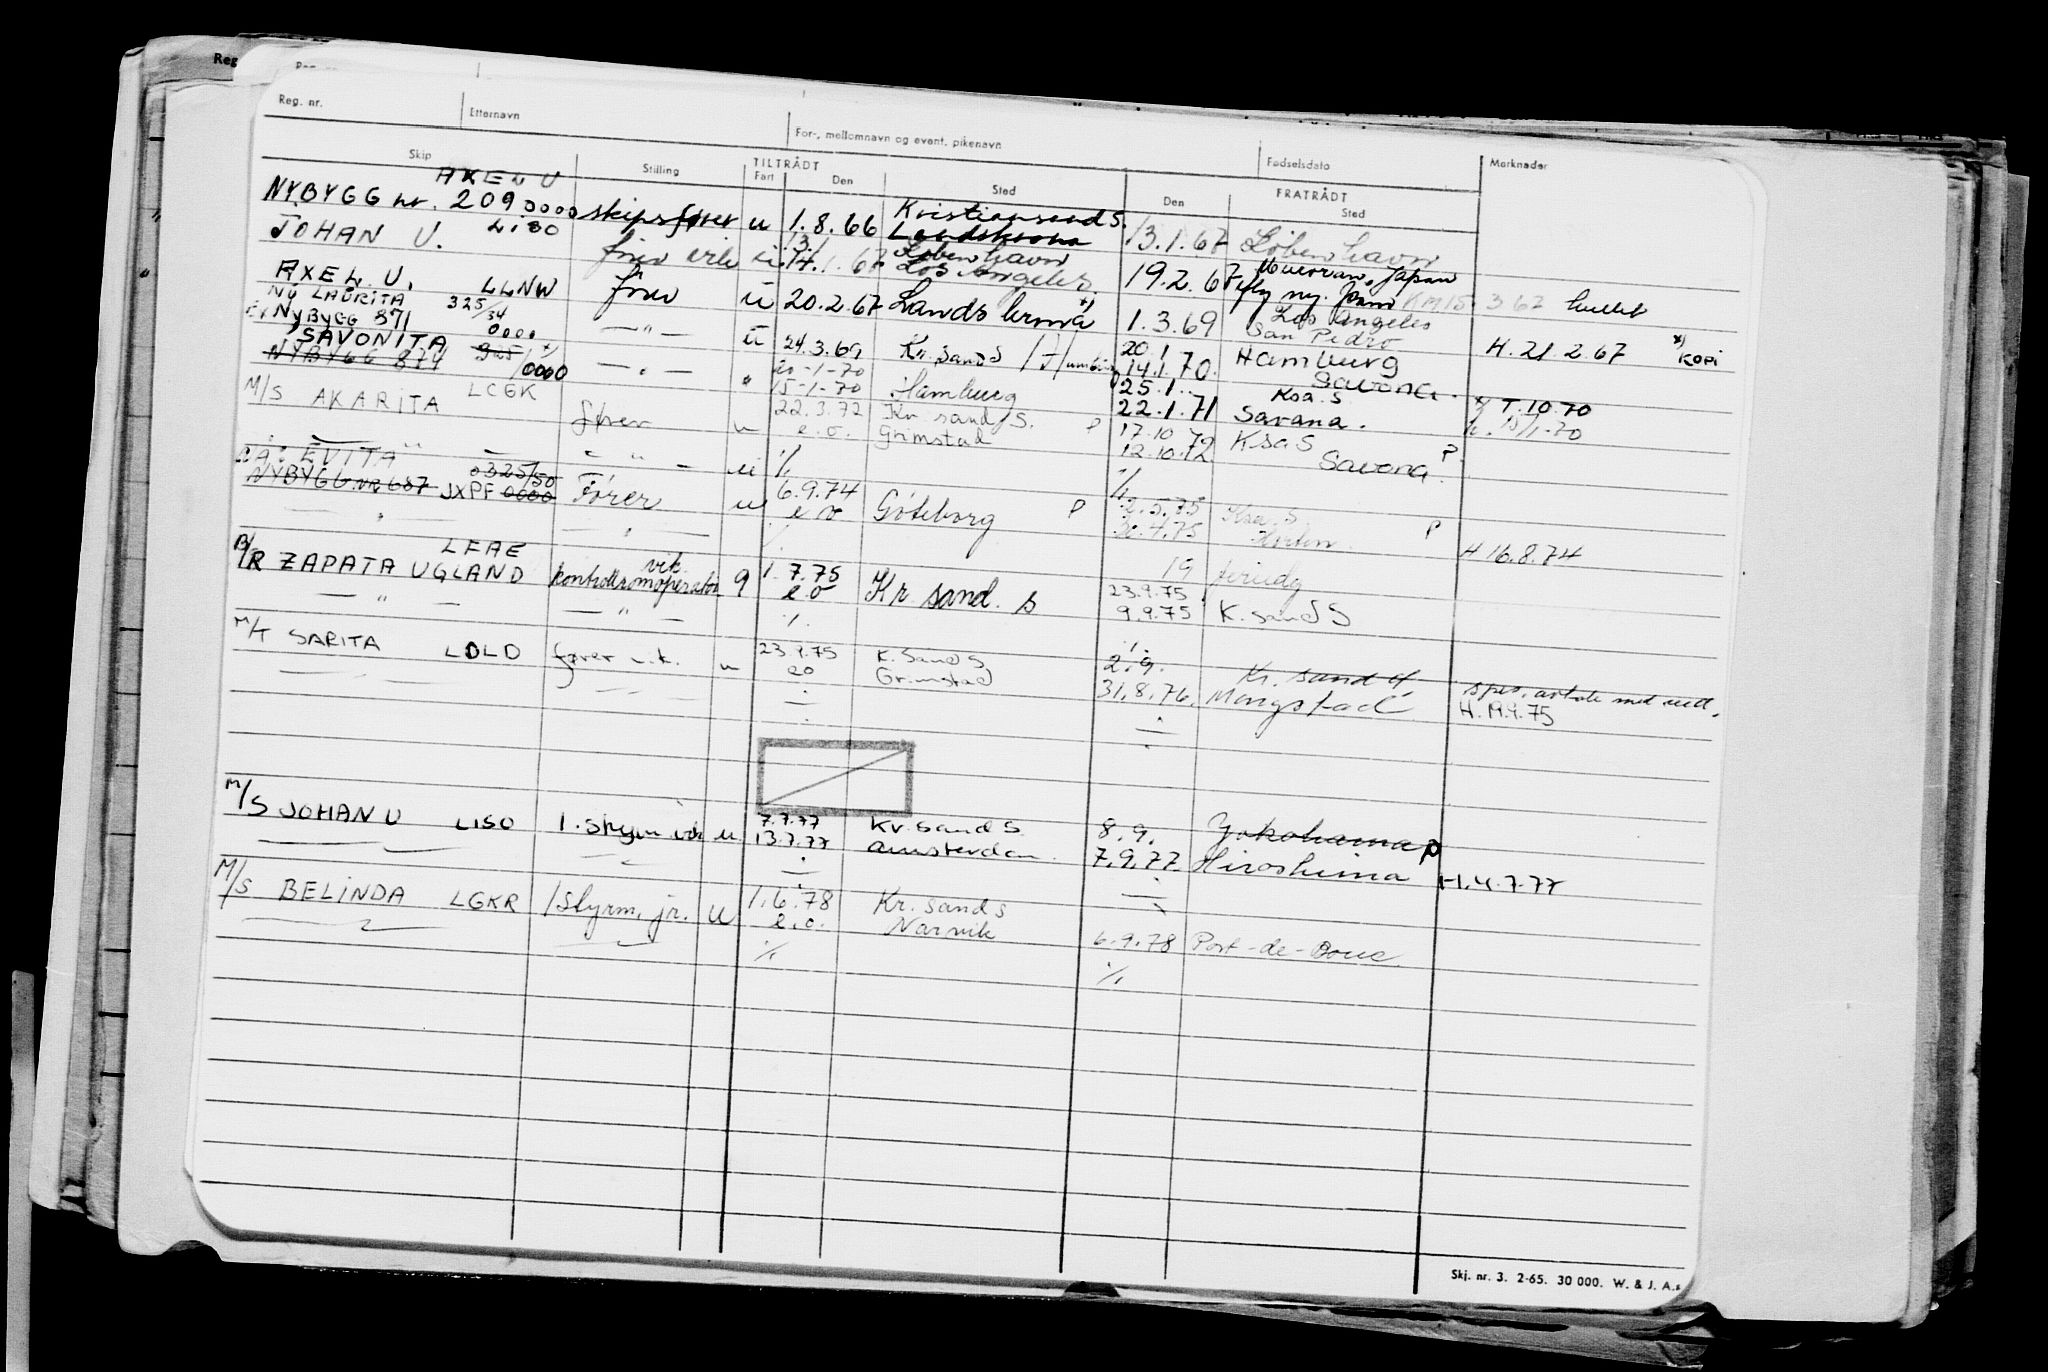 Reg. nr. Etternavn For-, mellomnavn og event. pikenavn Fødselsdato Merknader
Skip Stilling TILTRÅDT FRATRÅDT
Fart Den Sted Den Sted
AXEL U
NYBYGG nr. 209 0000 skipsfører u 1.8.66 Kristiansand S. Landskrona 13.1.67 København
JOHAN U. LISO u 14.1.67 København Los Angeles 19.2.67 Muroran, Japan
AXEL U. LLNW fører u 20.2.67 Landskrona 1.3.69 Los Angeles San Pedro H. 21.2.67 KOPI
NY LAURITA 325/34
EX NYBYGG 871 0000 — " — u 24.3.69 Kr. sand S 20.1 14.1.70. Hamburg
SAVONITA
NYBYGG 874 325/0000 — " — 15-1-70 Hamburg 25.1. 22.1.71 Savona. Ksa. S Savana. T.10.70
M/S AKARITA LCGK fører u 22.3.72 e.o. Kr. sand S. Grimstad P 17.10.72 12.10.72 Ksa S Savona P.
EVITA 0325/50
NYBYGG NR 687 JXPF 0000 Fører u 6.9.74 e o Göteborg P 2.5.75 30.4.75 Ksa. S Horten P H 16.8.74
LFAE
B/R ZAPATA UGLAND vik. kontrollromoperatør 9 1.7.75 e o Kr. sand. S 19 23.9.75 9.9.75 K. Sand S
M/T SARITA LDLD fører vik. u 23.9.75 eo K. Sand S Grimstad 2.9. 31.8.76. Kr. sand S Mongstad spes. avtale med red. H. 19.9.75
M/S JOHAN U LISO 1. styrm vik u 7.7.77 13.7.77 Kr. sand S Amsterdam. 8.9. 7.9.77 Yokohama P Hiroshima H. 4.7.77
M/S BELINDA LGKR 1 styrm. jr. u 1.6.78 e.o. Kr. sand S Narvik 6.9.78 Port-de-Bouc
Skj. nr. 3. 2-65. 30 000. W. & J. A.s